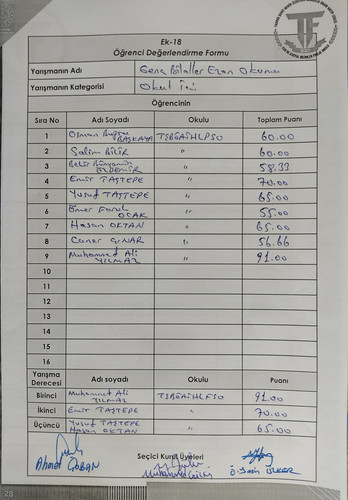 Ek-18
Öğrenci Değerlendirme Formu
Yarışmanın Adı Genç Bilaller Ezan Okuma
Yarışmanın Kategorisi Okul İçi
Öğrencinin
Sıra No Adı Soyadı Okulu Toplam Puanı
1 Osman Buğra BAŞKAYA TŞBGAİHLFSO 60.00
2 Salim BİLİR " 60.00
3 Bekir Bünyamin ÖZDEMİR " 58.33
4 Emir TAŞTEPE " 70.00
5 Yusuf TAŞTEPE " 65.00
6 Ömer Faruk OCAK " 55.00
7 Hasan OKTAN " 65.00
8 Caner ÇINAR " 56.66
9 Muhammed Ali YILMAZ " 91.00
10
11
12
13
14
15
16
Yarışma Derecesi Adı soyadı Okulu Puanı
Birinci Muhammed Ali YILMAZ TŞBGAİHLFSO 91.00
İkinci Emir TAŞTEPE " 70.00
Üçüncü Yusuf TAŞTEPE Hasan OKTAN " 65.00
Seçici Kurul Üyeleri
Ahmet ÇOBAN Muhammed